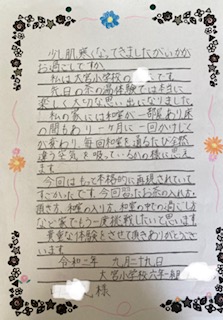 少し肌寒くなってきましたがいかが
お過ごしですか。
私は大宮小学校の です。
先日の茶の湯体験では本当に
楽しく大切な思い出になりました。
私の家には和室が一部屋あり床
の間もあり一ヶ月に一回かけじく
が変わり、毎回和室を通るたび全然
違う空気を吸っているかの様に思え
ます。
今回はもって本格的に再現されていて
すごかったです。今回習ったお茶の入れ方、
頂き方、和室の入り方、和室の中での過ごし方
など家でもう一度挑戦したいと思います。
貴重な体験をさせて頂きありがとうござ
います。
令和二年 九月二十九日
大宮小学校六年一組
様